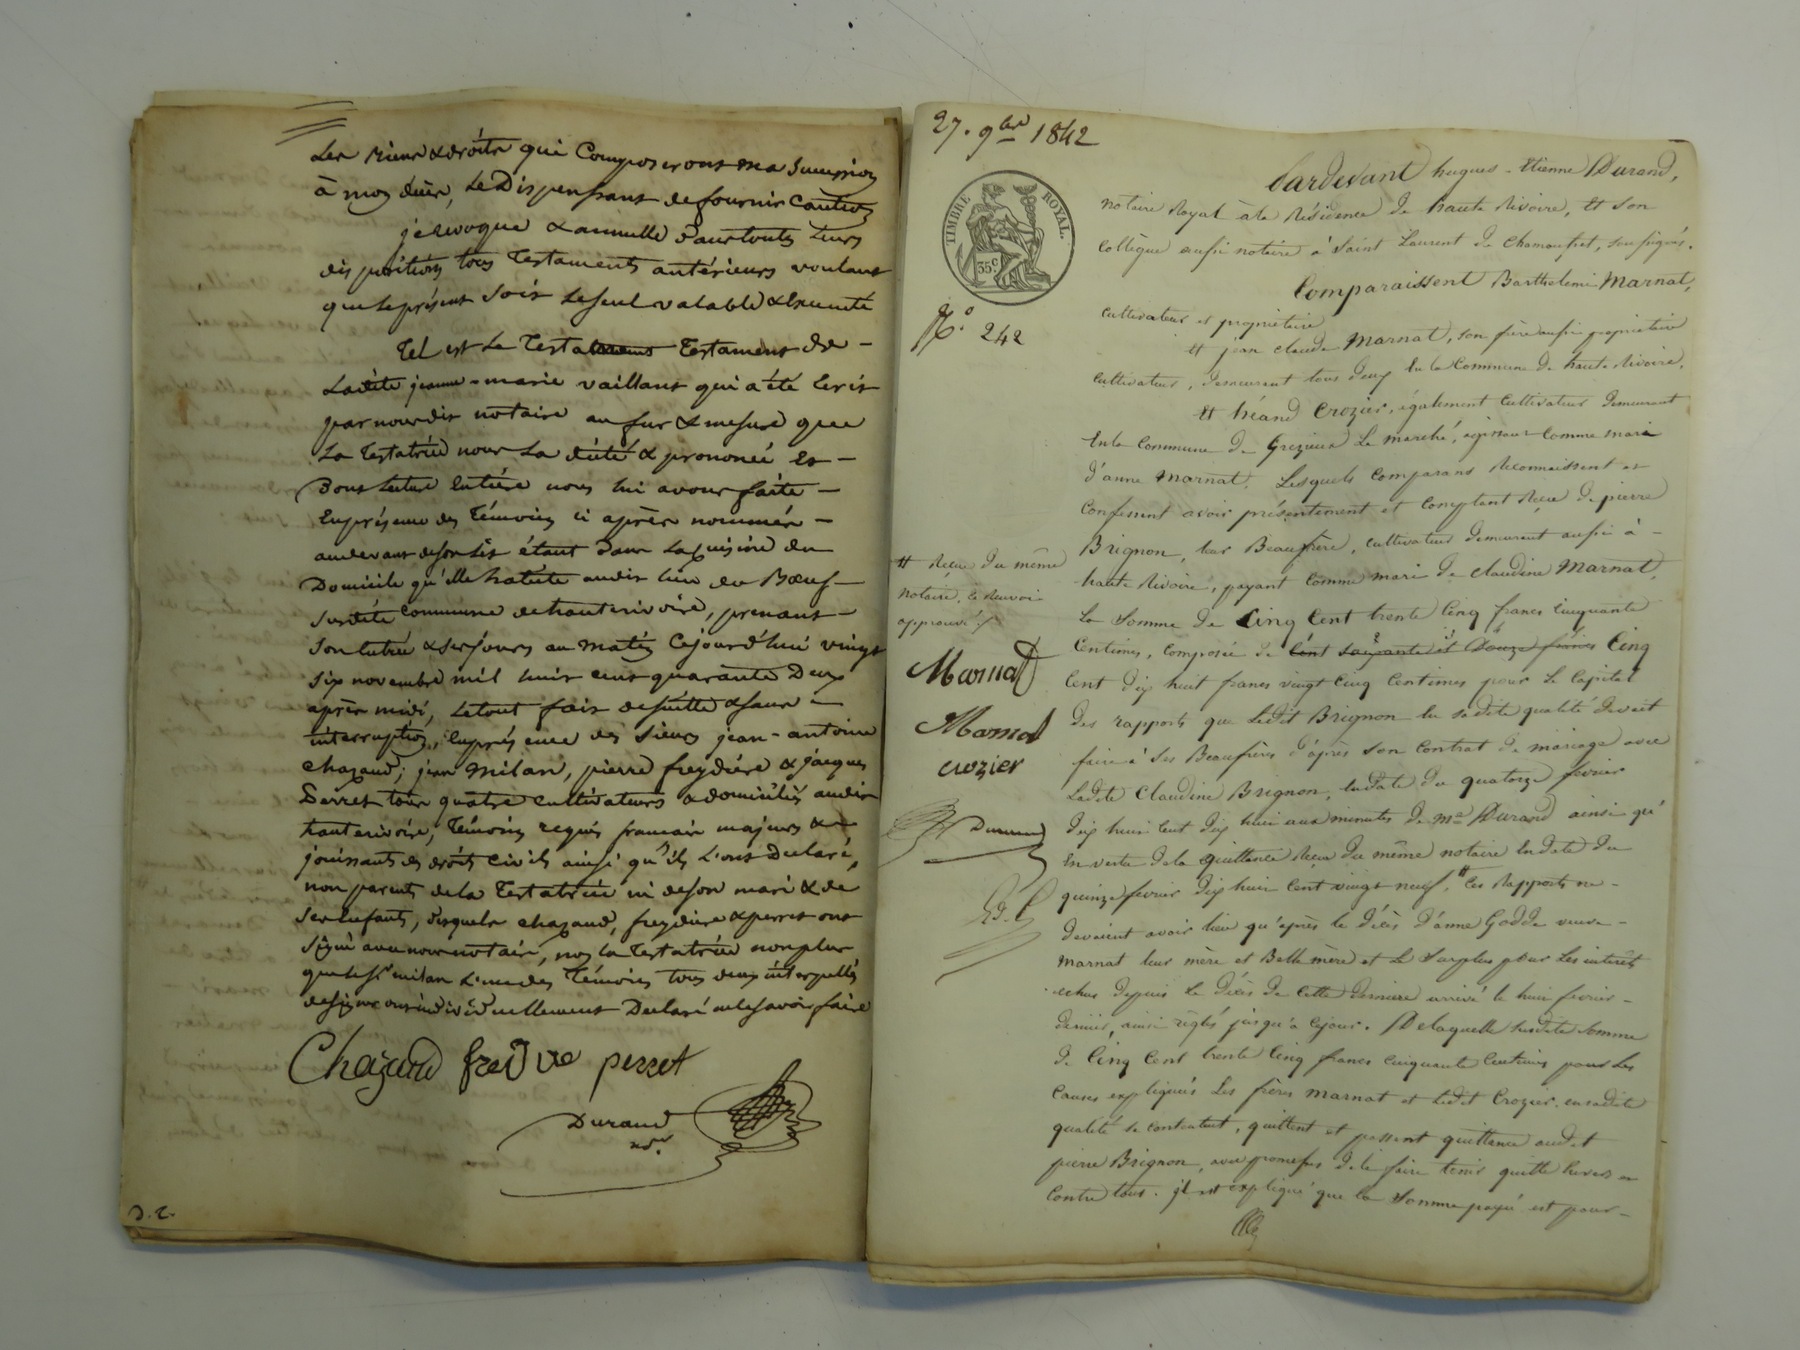 Les biens & droits qui Composeront ma succession
à mon décès, Le Dispensant de fournir Caution
je révoque & annulle par toutes leurs
dispositions tous Testaments antérieurs voulant
que le présent soit le seul valable & Exécuté
Tel est Le Testament De –
Ladite jeanne-marie vaillant qui a été Ecrit
par nous dit notaire au fur & mesure que
La Testatrice nous La dicté & prononcé Et –
Dont Lecture Entière nous lui avons faite –
En présence des Témoins ci après nommés –
au devant de son Lit étant Dans La cuisine du
Domicile qu'elle habite audit lieu du Bœuf –
susdite Commune de haute rivoire, prenant –
son Entrée & ses jours au matin Cejourd'hui vingt
six novembre mil huit cent quarante Deux
après midi, Le tout fait de suitte & sans –
interruption, En présence des sieurs jean-antoine
chazaud, jean Milan, pierre freydiére & jacques
Perret tous quatre cultivateurs & domiciliés audit
hauterivoire, Témoins requis francais majeurs & –
jouissants des droits Civils ainsi qu'ils L'ont Declaré,
non parents de la Testatrice ni de son mari & de
ses Enfants, desquels chazaud, freydiere & perret ont
signé avec nous notaire, non la Testatrice non plus
que le sr milan L'un des Témoins tous deux interpellés
de signer ont individuellement Declaré ne le savoir faire
Chazaud freidière perret
Durand
nre.
D. 2.
27. 9bre 1842
TIMBRE ROYAL.
35c
No. 242
Pardevant hugues-Etienne Durand,
notaire Royal à la Résidence de haute Rivoire, et son
Collègue aussi notaire à Saint Laurent de Chamousset, soussignés.
Comparaissent Barthelemi Marnat,
cultivateur et propriétaire
Et jean claude Marnat, son frère aussi propriétaire
Cultivateur, demeurant tous deux En la Commune de haute Rivoire,
Et Crozier, également Cultivateur Demeurant
En la Commune de Grezieux Le marché, agissant Comme mari
d'anne Marnat. Lesquels Comparans Reconnaissent et
Confessent avoir présentement et Comptant Reçu de pierre
Brignon, leur Beaufrère, cultivateur demeurant aussi à –
haute Rivoire, payant Comme mari de Claudine Marnat,
La Somme de Cinq Cent trente Cinq francs Cinquante
Centimes, Composée de Cent soixante et Douze francs Cinq
Cent dix huit francs vingt Cinq Centimes pour Le Capital
des rapports que Ledit Brignon En sadite qualité devait
faire à ses Beaufrères d'après son Contrat de mariage avec
Ladite Claudine Brignon, En date du quatorze fevrier
dix huit Cent dix huit aux minutes de Me Durand ainsi qu'
En vertu de la quittance Reçue du même notaire En date du
quinze fevrier dix huit Cent vingt neuf,# Ces Rapports ne –
devaient avoir lieu qu'après le Décès d'anne Godde veuve –
Marnat leur mère et Belle mère et Le Surplus pour Les interêts
echus depuis Le Décès de Cette dernière arrivé le huit fevrier –
dernier, ainsi réglés jusqu'à Cejour. De laquelle susdite Somme
de Cinq Cent trente Cinq francs Cinquante Centimes pour Les
Causes expliquées Les frères Marnat et Ledit Crozier en sadite
qualité se Contentent, quittent et passent quittance audit
pierre Brignon, avec promesse de le faire tenir quitte Envers et
Contre tous. jl est expliqué que la Somme payée est pour –
# Reçue du même
notaire, Ce Renvoi
approuvé
Marnat
Marnat
crozier
Durand